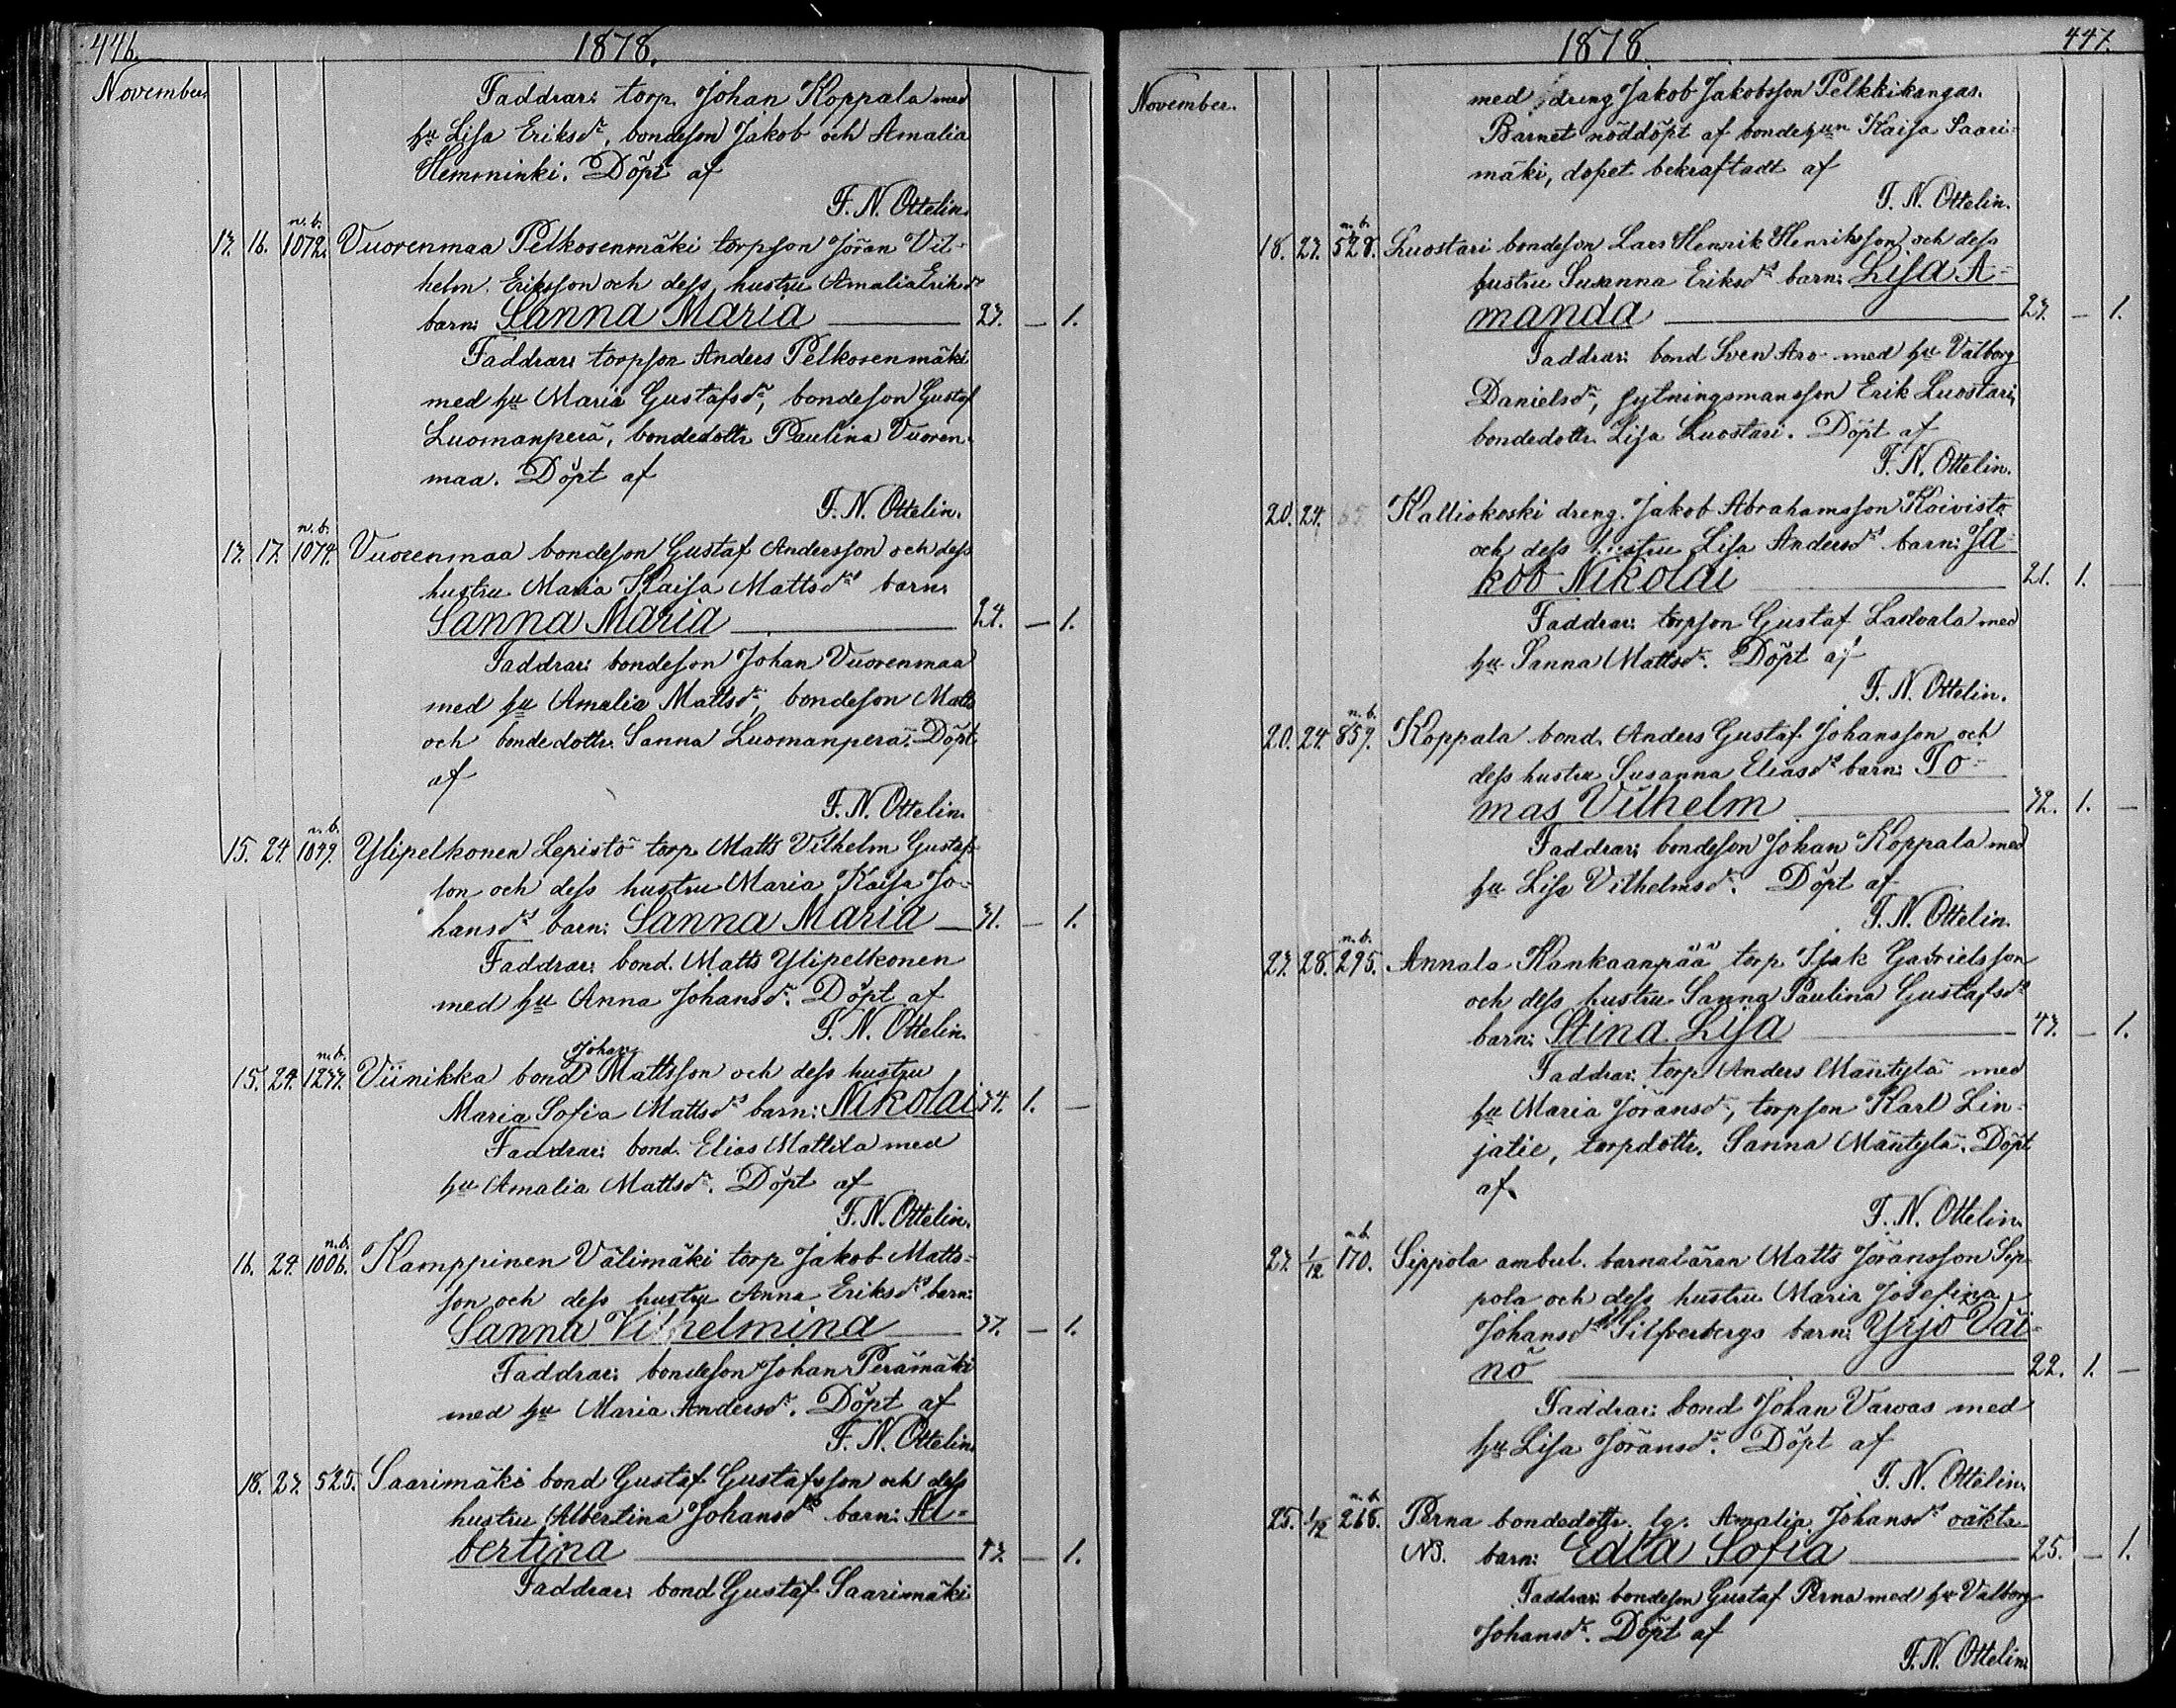 446.
1878.
November.
Faddrar: torp. Johan Koppala med
hu Lisa Eriksdr, bondeson Jakob och Amalia
Hemminki. Döpt af
F. N. Ottelin.
n.b.
17. 16. 1072. Vuorenmaa Pelkosenmäki torpson Jöran Vil-
helm Eriksson och dess hustru Amalia Eriksdr
barn: Sanna Maria 27. — 1.
Faddrar: torpson Anders Pelkosenmäki
med hu Maria Gustafsdr, bondeson Gustaf
Luomanperä, bondedottr Paulina Vuoren-
maa. Döpt af
F. N. Ottelin.
n.b.
17. 17. 1074. Vuorenmaa bondeson Gustaf Andersson och dess
hustru Maria Kaisa Mattsdrs barn:
Sanna Maria 24. — 1.
Faddrar: bondeson Johan Vuorenmaa
med hu Amalia Mattsdr, bondeson Matts
och bondedottr. Sanna Luomanperä. Döpt
af
F. N. Ottelin.
n.b.
15. 24. 1049. Ylipelkonen Lepistö torp Matts Vilhelm Gustafs-
son och dess hustru Maria Kaisa Jo-
hansdrs barn: Sanna Maria 31. — 1.
Faddrar: bond. Matts Ylipelkonen
med hu Anna Johansdr. Döpt af
F. N. Ottelin.
n.b. Johan
15. 24. 1277. Viinikka bond Mattsson och dess hustru
Maria Sofia Mattsdrs barn: Nikolai 34. 1. —
Faddrar: bond. Elias Mattila med
hu Amalia Mattsdr. Döpt af
F. N. Ottelin.
n.b.
16. 24. 1006. Kamppinen Välimäki torp Jakob Matts-
son och dess hustru Anna Eriksdrs barn:
Sanna Vilhelmina 37. — 1.
Faddrar: bondeson Johan Perämäki
med hu Maria Andersdr. Döpt af
F. N. Ottelin.
18. 27. 525. Saarimäki bond Gustaf Gustafsson och dess
hustru Albertina Johansdrs barn: Al-
bertina 47. — 1.
Faddrar: bond Gustaf Saarimäki
1878.
447.
November.
med dreng Jakob Jakobsson Pelkkikangas.
Barnet nöddöpt af bondehun Kaisa Saari-
mäki, dopet bekraftadt af
F. N. Ottelin.
n.b.
18. 27. 528. Luostari bondeson Lars Henrik Henriksson och dess
hustru Susanna Eriksdrs barn: Lisa A-
manda 27. — 1.
Faddrar: bond Sven Aro med hu Valborg
Danielsdr, sytningsmansson Erik Luostari,
bondedottr. Lisa Luostari. Döpt af
F. N. Ottelin.
20. 24. 65. Kalliokoski dreng. Jakob Abrahamsson Koivisto
och dess hustru Lisa Andersdrs barn: Ja-
kob Nikolai 21. 1. —
Faddrar: torpson Gustaf Lasvala med
hu Sanna Mattsdr. Döpt af
F. N. Ottelin.
n.b.
20. 24. 859. Koppala bond. Anders Gustaf Johansson och
dess hustru Susanna Eliasdrs barn: To-
mas Vilhelm 32. 1. —
Faddrar: bondeson Johan Koppala med
hu Lisa Vilhelmsdr. Döpt af
F. N. Ottelin.
n.b.
27. 28. 295. Annala Kankaanpää torp Isak Gabrielsson
och dess hustru Sanna Paulina Gustafsdrs
barn: Stina Lisa 47. — 1.
Faddrar: torp Anders Mäntylä med
hu Maria Jöransdr, torpson Karl Lin-
jatie, torpdottr. Sanna Mäntylä. Döpt
af
F. N. Ottelin.
n.b.
27. 1/12 170. Sippola ambul. barnaläran Matts Jöransson Sip-
pola och dess hustru Maria Josefina
Johansdr Silfverbergs barn: Yrjö Väi-
nö 22. 1. —
Faddrar: bond Johan Varvas med
hu Lisa Jöransdr. Döpt af
F. N. Ottelin.
n.b.
25. 1/12 268. Perna bondedottr. lg. Amalia Johansdrs oäkta
NB. barn: Edla Sofia 25. — 1.
Faddrar: bondeson Gustaf Perna med hu Valborg
Johansdr. Döpt af
F. N. Ottelin.